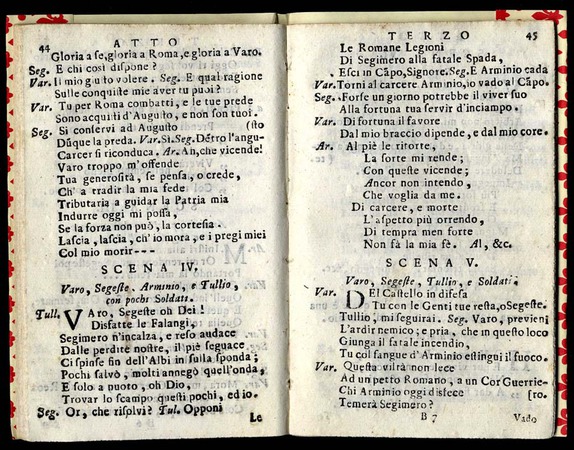 44 ATTO
Gloria a se, gloria a Roma, e gloria a Varo.
Seg. E chi così dispone?
Var. Il mio giusto volere. Seg. E qual ragione
Sulle conquiste mie aver tu puoi?
Var. Tu per Roma combatti, e le tue prede
Sono acquisti d'Augusto, e non son tuoi.
Seg. Si conservi ad Augusto (sto
Dũque la preda. Var. Sì. Seg. Dẽtro l'angu-
Carcer si riconduca. Ar. Ah, che vicende!
Varo troppo m'offende
Tua generosità, se pensa, o crede,
Ch' a tradir la mia fede
Tributaria a guidar la Patria mia
Indurre oggi mi possa,
Se la forza non può, la cortesia.
Lascia, lascia, ch' io mora, e i pregi miei
Col mio morir---
SCENA IV.
Varo, Segeste, Arminio, e Tullio,
con pochi Soldati.
Tull. VAro, Segeste oh Dei!
Disfatte le Falangi,
Segimero n'incalza, e reso audace
Dalle perdite nostre, il piè seguace
Ci spinse fin dell'Albi in sulla sponda;
Pochi salvò, molti annegò quell'onda,
E solo a nuoto, oh Dio,
Trovar lo scampo questi pochi, ed io.
Seg. Or, che risolvi? Tul. Opponi
Le
TERZO 45
Le Romane Legioni
Di Segimero alla fatale Spada,
Esci in Cãpo, Signore. Seg. E Arminio cada
Var. Torni al carcere Arminio, io vado al Cãpo.
Seg. Forse un giorno potrebbe il viver suo
Alla fortuna tua servir d'inciampo.
Var. Di fortuna il favore
Dal mio braccio dipende, e dal mio core.
Ar. Al piè le ritorte,
La sorte mi rende;
Con queste vicende;
Ancor non intendo,
Che voglia da me.
Di carcere, e morte
L'aspetto più orrendo,
Di tempra men forte
Non fà la mia fè. Al, &c.
SCENA V.
Varo, Segeste, Tullio, e Soldati.
Var. DEl Castello in difesa
Tu con le Genti tue resta, o Segeste.
Tullio, mi seguirai. Seg. Varo, previeni
L'ardir nemico; e pria, che in questo loco
Giunga il fatale incendio,
Tu col sangue d'Arminio estingui il fuoco.
Var. Questa viltà non lece
Ad un petto Romano, a un Cor Guerrie-
Chi Arminio oggi disfece [ro.
Temerà Segimero?
B 7 Vado